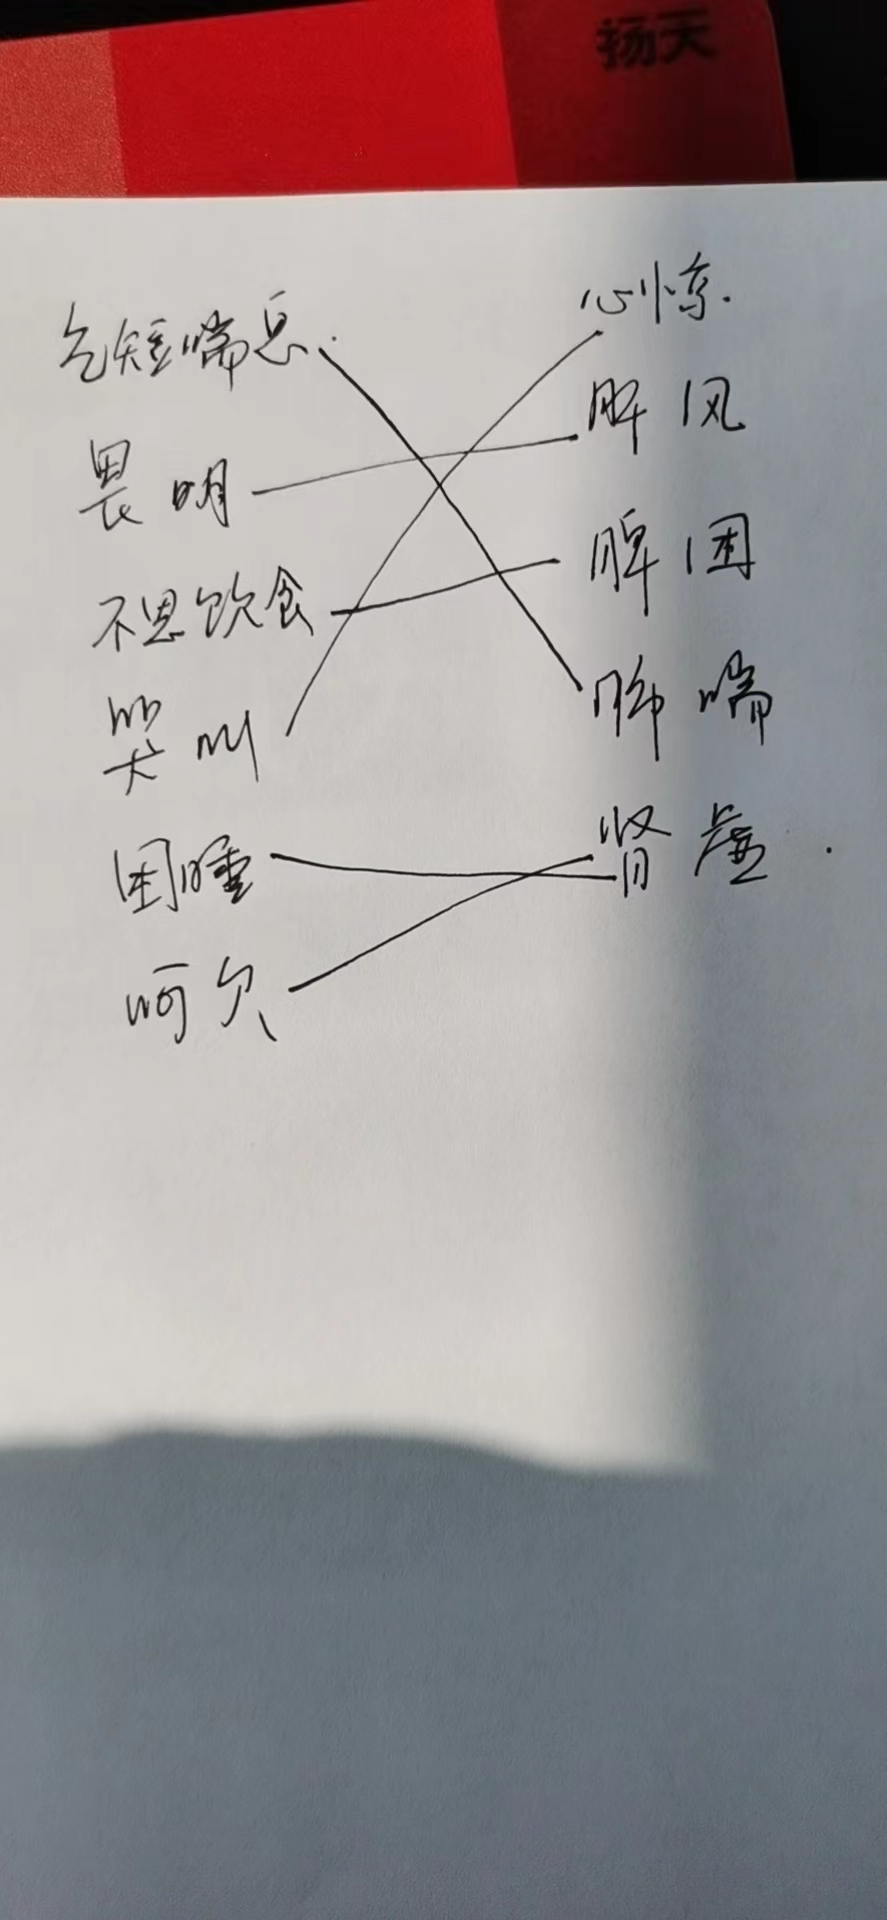 扬天
气短喘息
畏明
不思饮食
哭叫
困睡
呵欠
心惊
肝风
脾困
肺喘
肾虚